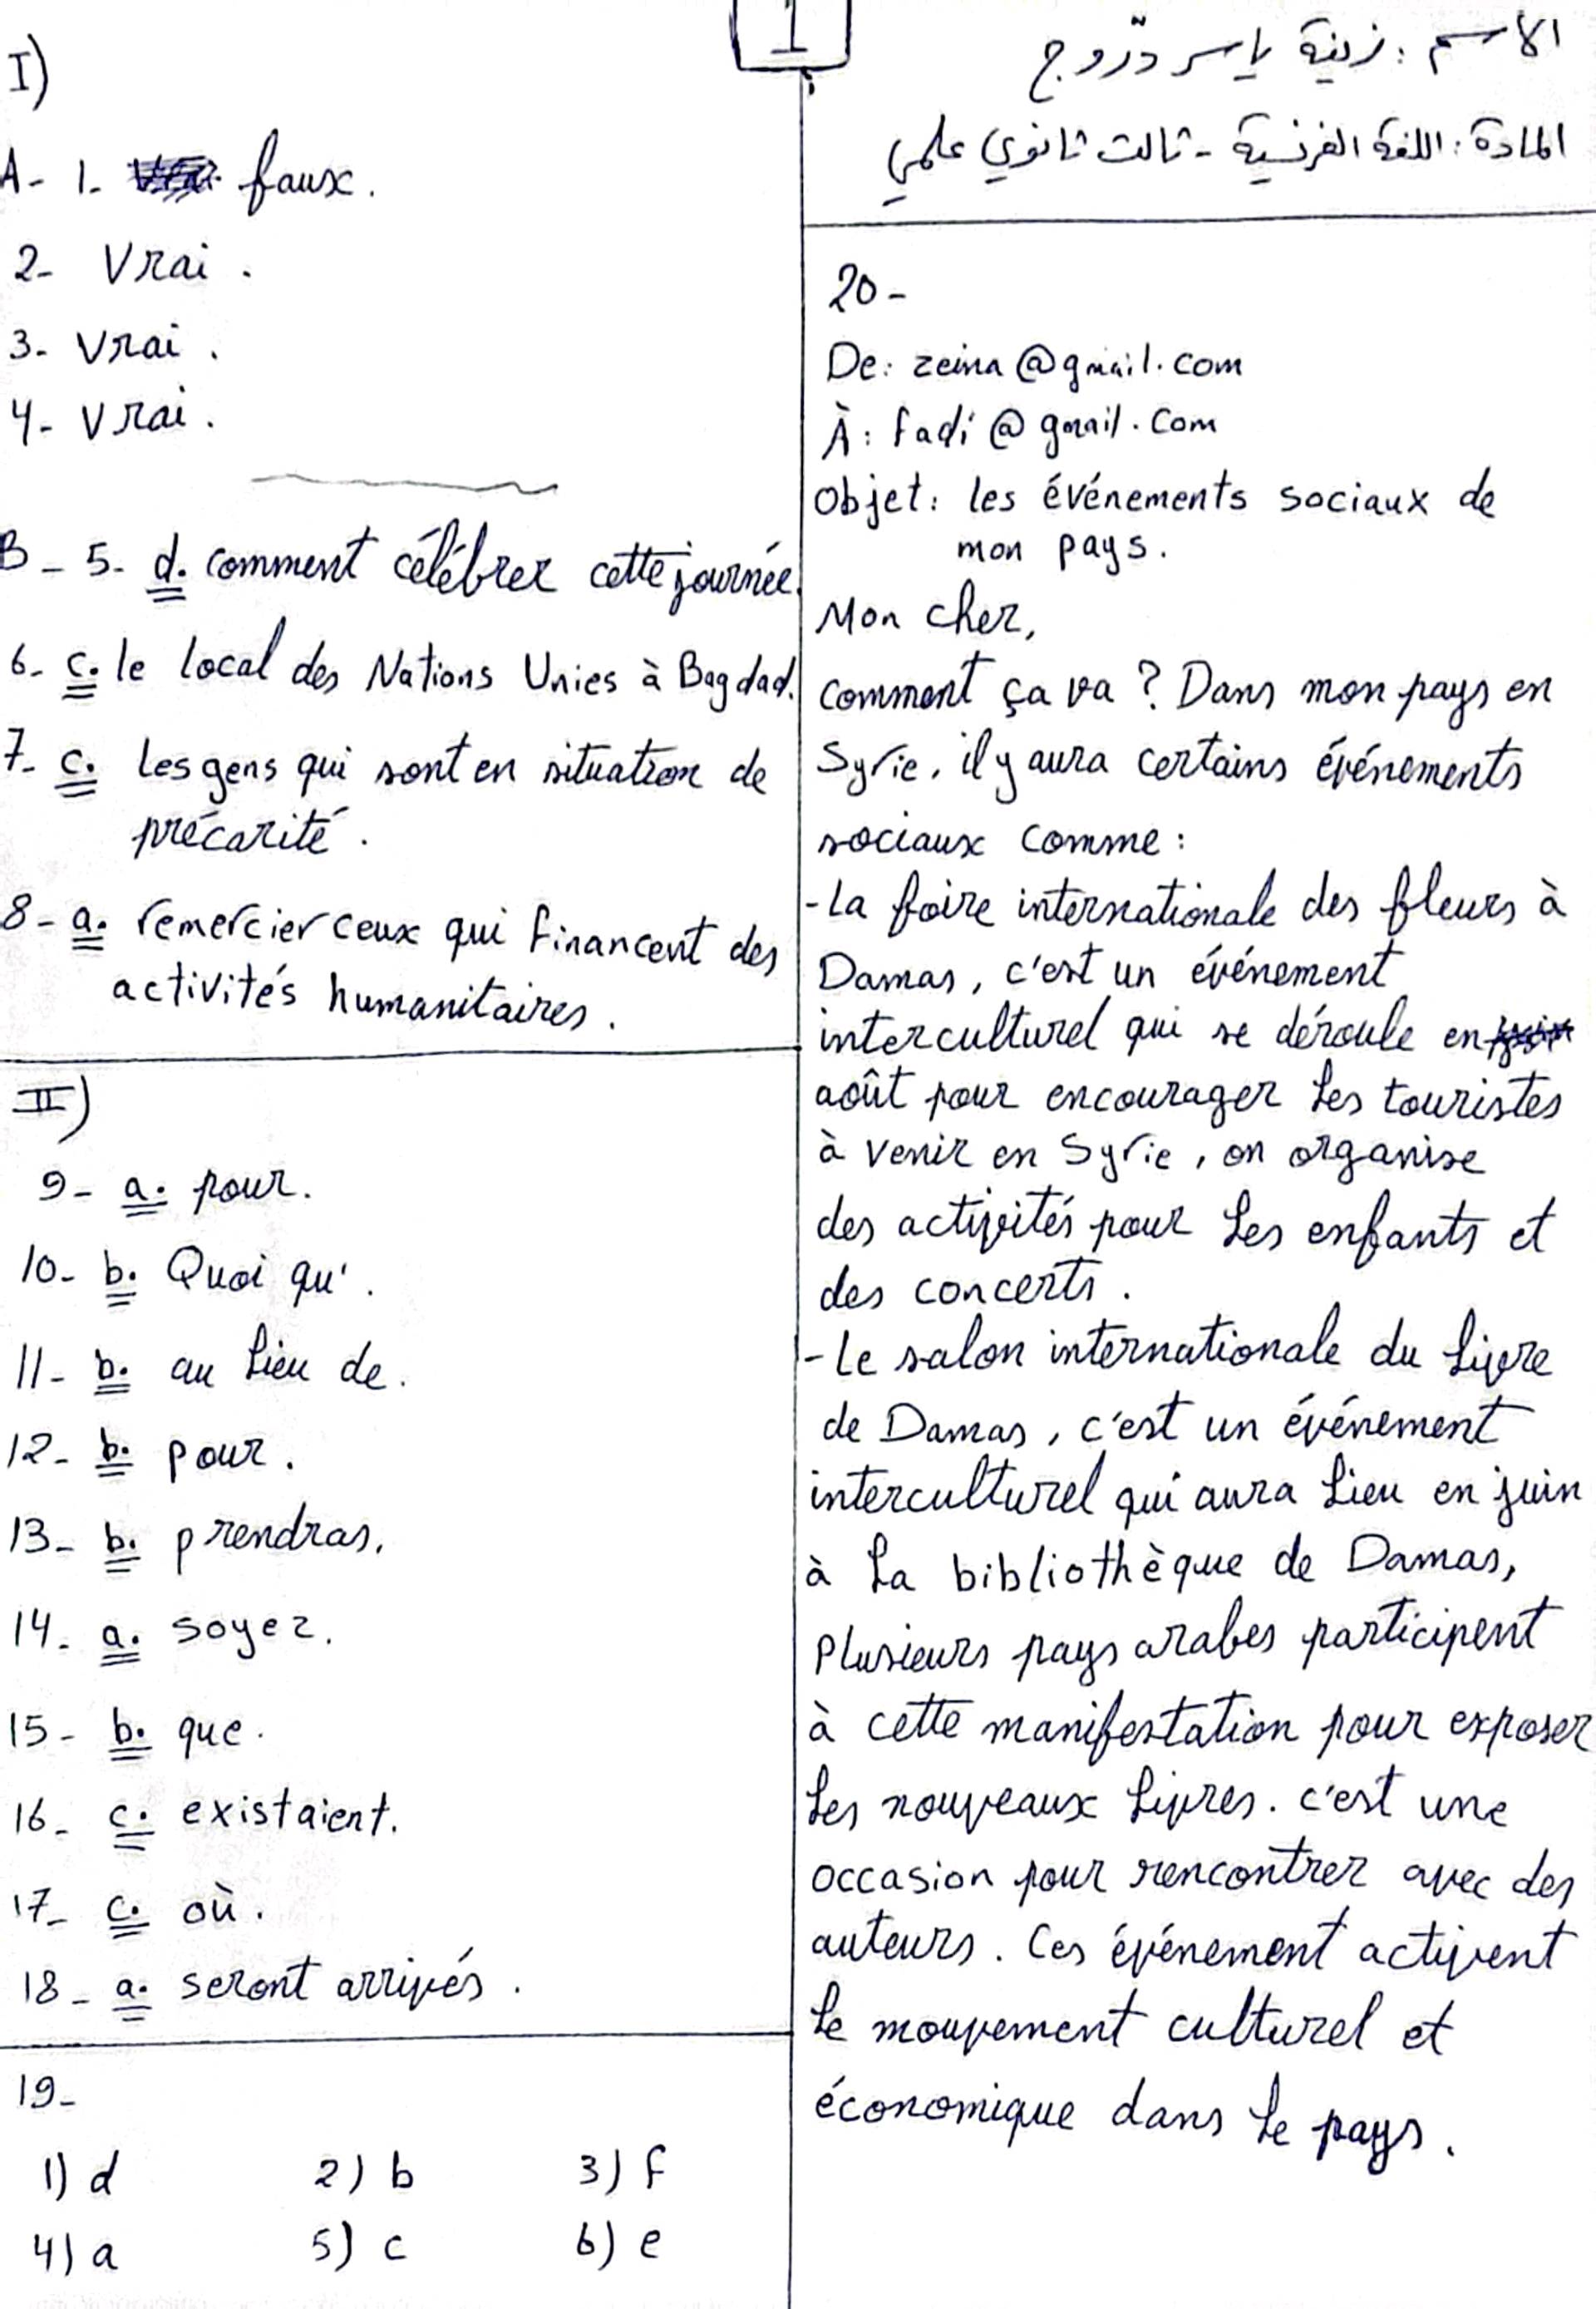 1
الاسم : زينة ياسر درّوج
المادة : اللغة الفرنسية - ثالث ثانوي علمي
I)
A- 1- faux.
2- Vrai.
3- Vrai.
4- Vrai.
B - 5- d. comment célébrer cette journée.
6- c. le local des Nations Unies à Bagdad.
7- c. les gens qui sont en situation de
précarité.
8- a. remercier ceux qui financent des
activités humanitaires.
II)
9- a. pour.
10- b. Quoi qu'.
11- b. au lieu de.
12- b. pour.
13- b. prendras.
14- a. soyez.
15- b. que.
16- c. existaient.
17- c. où.
18- a. seront arrivés.
19-
1) d 2) b 3) f
4) a 5) c 6) e
20-
De: zeina@gmail.com
À: fadi@gmail.com
Objet: les événements sociaux de
mon pays.
Mon cher,
comment ça va ? Dans mon pays en
Syrie, il y aura certains événements
sociaux comme :
-La foire internationale des fleurs à
Damas, c'est un événement
interculturel qui se déroule en
août pour encourager les touristes
à venir en Syrie, on organise
des activités pour les enfants et
des concerts.
-Le salon internationale du livre
de Damas, c'est un événement
interculturel qui aura lieu en juin
à la bibliothèque de Damas,
Plusieurs pays arabes participent
à cette manifestation pour exposer
les nouveaux livres. c'est une
occasion pour rencontrer avec des
auteurs. Ces événement activent
le mouvement culturel et
économique dans le pays.